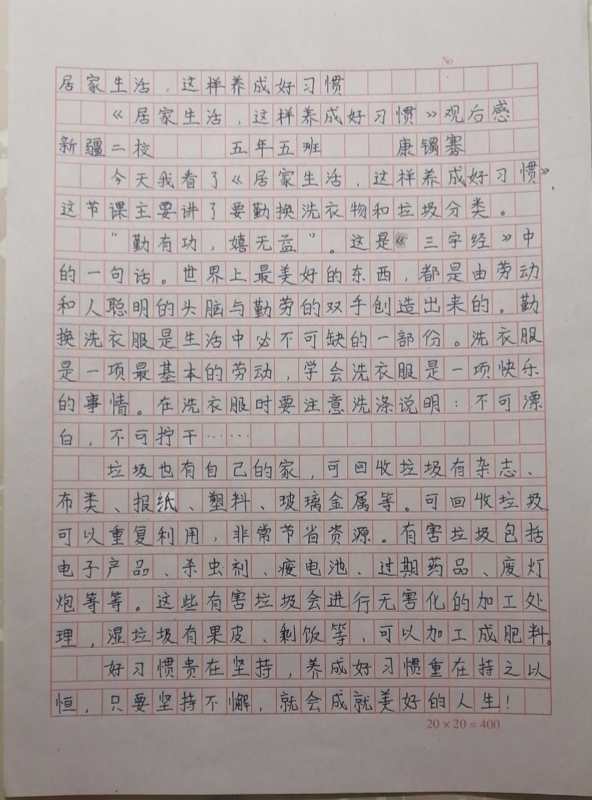 No
居家生活，这样养成好习惯
《居家生活，这样养成好习惯》观后感
新疆二校 五年五班 康锡骞
今天我看了《居家生活，这样养成好习惯》，
这节课主要讲了要勤换洗衣物和垃圾分类。
“勤有功，嬉无益”。这是《三字经》中
的一句话。世界上最美好的东西，都是由劳动
和人聪明的头脑与勤劳的双手创造出来的。勤
换洗衣服是生活中必不可缺的一部份。洗衣服
是一项最基本的劳动，学会洗衣服是一项快乐
的事情。在洗衣服时要注意洗涤说明：不可漂
白，不可拧干……
垃圾也有自己的家，可回收垃圾有杂志、
布类、报纸、塑料、玻璃金属等。可回收垃圾
可以重复利用，非常节省资源。有害垃圾包括
电子产品、杀虫剂、废电池、过期药品、废灯
炮等等。这些有害垃圾会进行无害化的加工处
理，湿垃圾有果皮、剩饭等，可以加工成肥料。
好习惯贵在坚持，养成好习惯重在持之以
恒，只要坚持不懈，就会成就美好的人生！
20×20=400